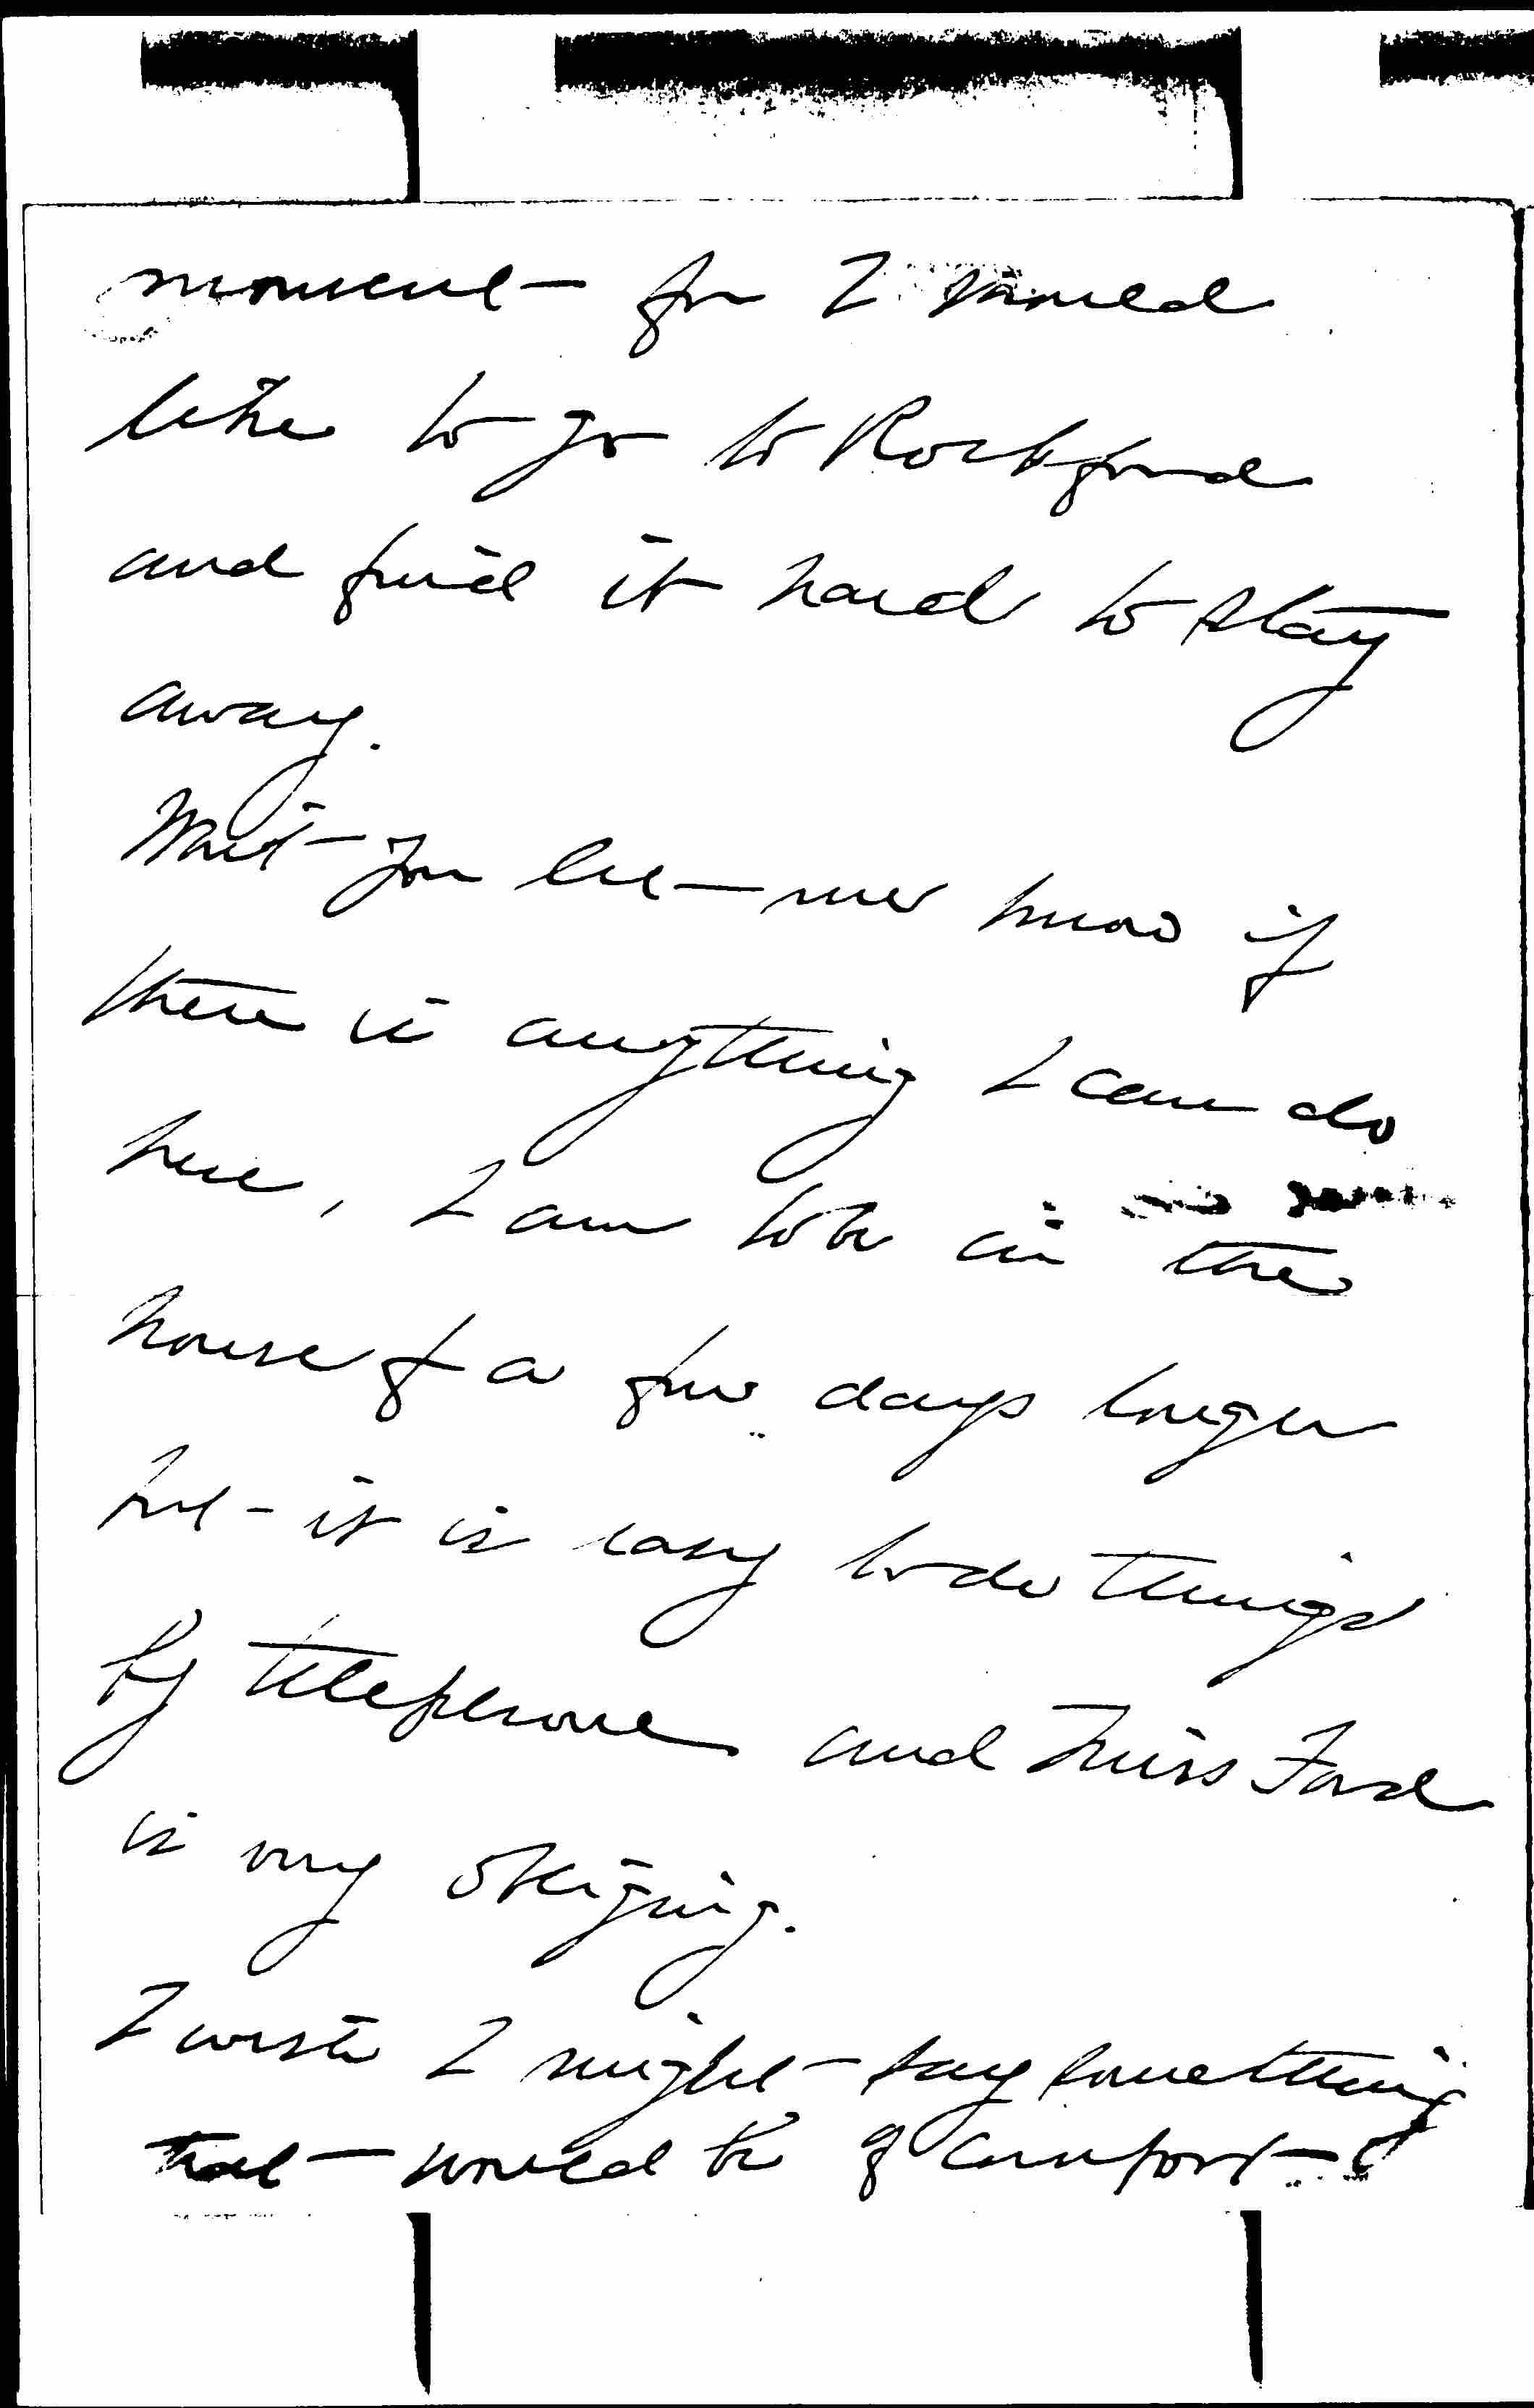 moment for I would
like to go to Rockford
and find it hard to stay
away.
Won't you let me know if
there is anything I can do
here, I am to be in the
house f a few days longer
but it is easy to do things
by telephone and Miss Ford
is very obliging.
I wish I might say something
that would be of comfort